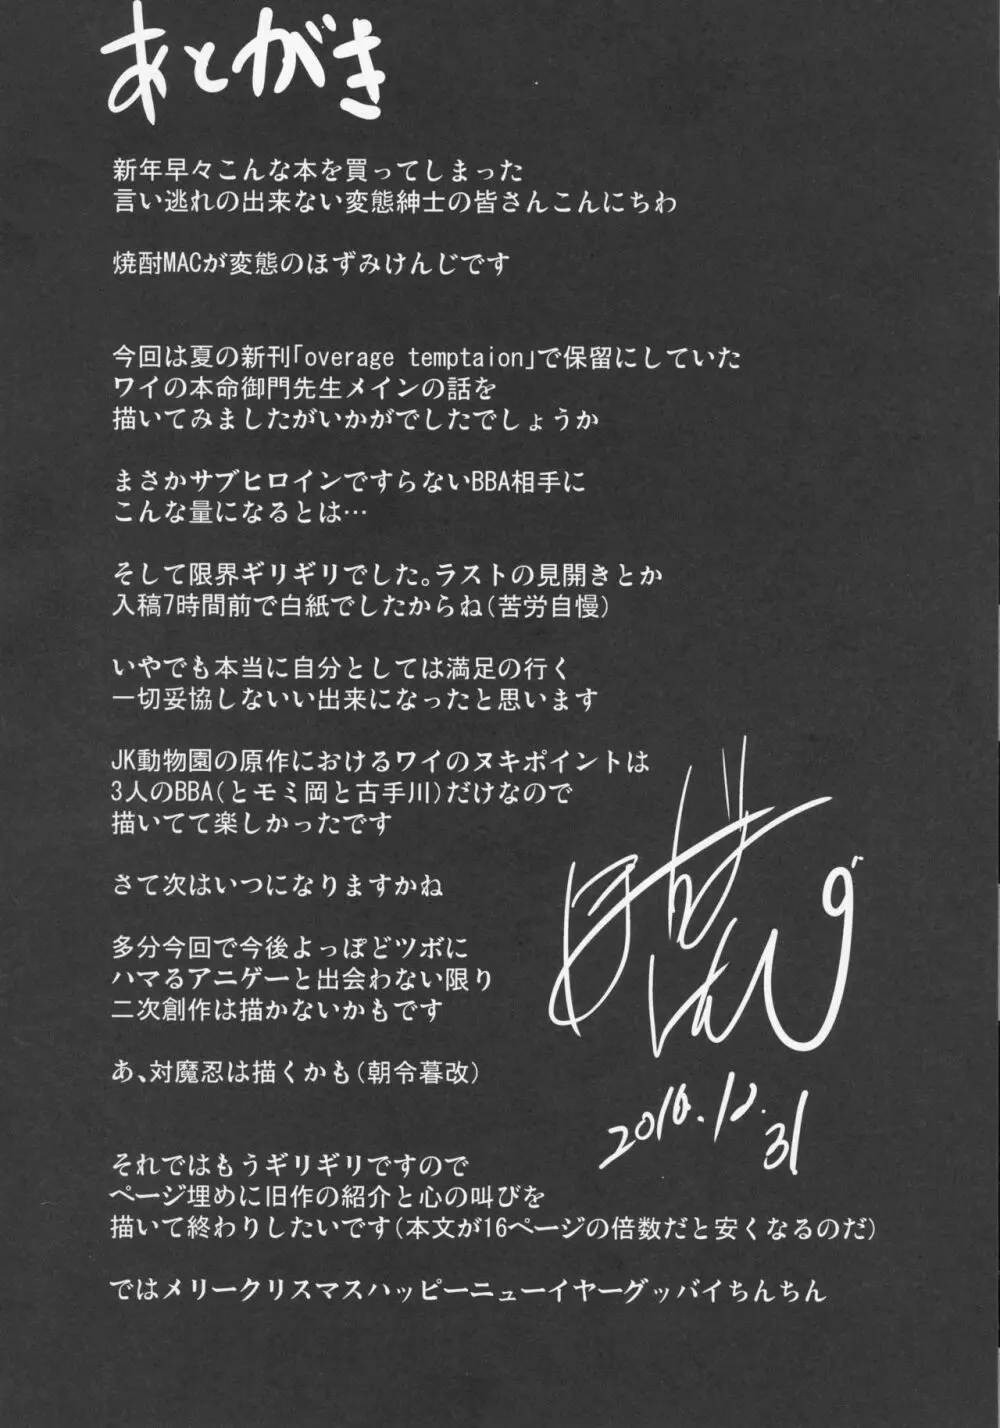 あとがき
新年早々こんな本を買ってしまった
言い逃れの出来ない変態紳士の皆さんこんにちわ
焼酎MACが変態のほずみけんじです
今回は夏の新刊｢overage temptaion｣で保留にしていた
ワイの本命御門先生メインの話を
描いてみましたがいかがでしたでしょうか
まさかサブヒロインですらないBBA相手に
こんな量になるとは…
そして限界ギリギリでした。ラストの見開きとか
入稿7時間前で白紙でしたからね(苦労自慢)
いやでも本当に自分としては満足の行く
一切妥協しないいい出来になったと思います
JK動物園の原作におけるワイのヌキポイントは
3人のBBA(とモミ岡と古手川)だけなので
描いてて楽しかったです
さて次はいつになりますかね
多分今回で今後よっぽどツボに
ハマるアニゲーと出会わない限り
二次創作は描かないかもです
あ、対魔忍は描くかも(朝令暮改)
それではもうギリギリですので
ページ埋めに旧作の紹介と心の叫びを
描いて終わりしたいです(本文が16ページの倍数だと安くなるのだ)
ではメリークリスマスハッピーニューイヤーグッバイちんちん
2016.12.31